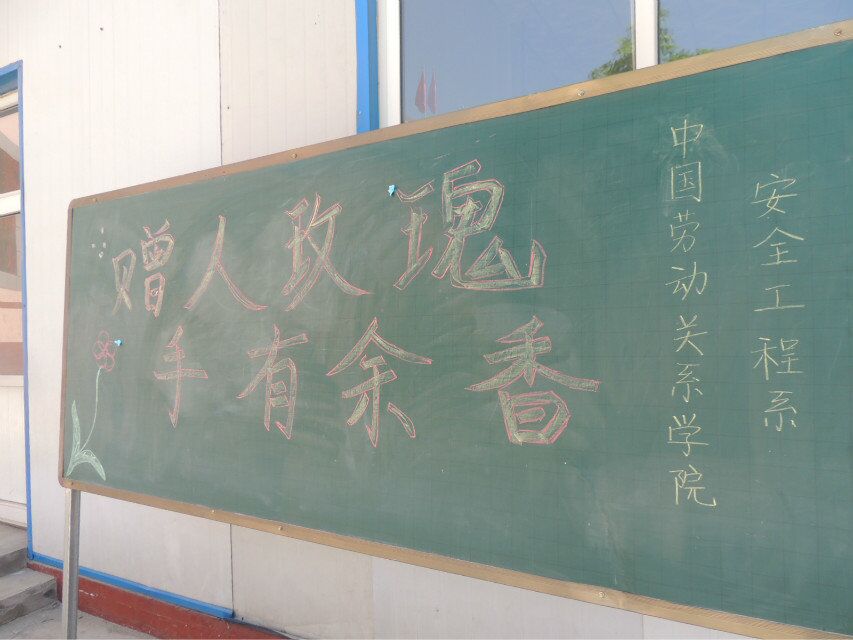 赠人玫瑰
手有余香
中国劳动关系学院
安全工程系